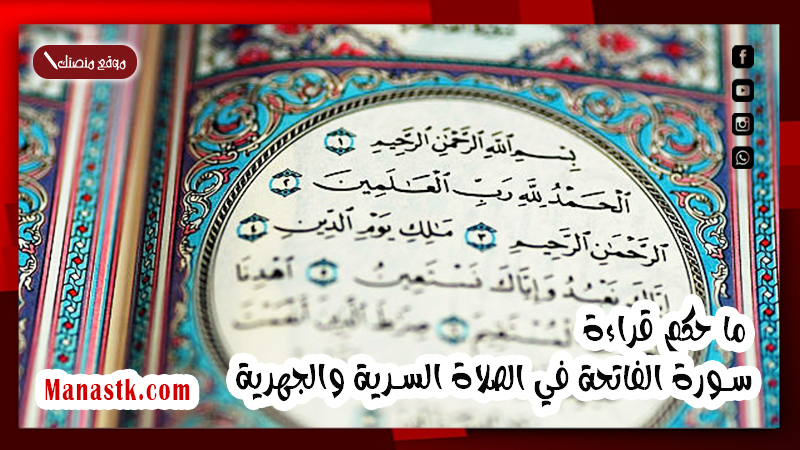 موقع منصتك
بِسْمِ ٱللَّهِ ٱلرَّحْمَٰنِ ٱلرَّحِيمِ ١
ٱلْحَمْدُ لِلَّهِ رَبِّ ٱلْعَٰلَمِينَ ٢
ٱلرَّحْمَٰنِ ٱلرَّحِيمِ ٣ مَٰلِكِ يَوْمِ ٱلدِّينِ ٤
إِيَّاكَ نَعْبُدُ وَإِيَّاكَ نَسْتَعِينُ ٥ ٱهْدِنَا
صِرَٰطَ ٱلَّذِينَ أَنْعَمْتَ
ما حكم قراءة
سورة الفاتحة في الصلاة السرية والجهرية
Manastk.com